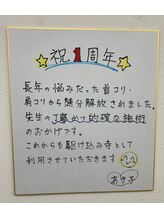 祝1周年
長年の悩みだった首コリ・
肩コリから随分解放されました。
先生の丁寧かつ的確な施術
のおかげです。
これからも駆け込み寺として
利用させていただきます